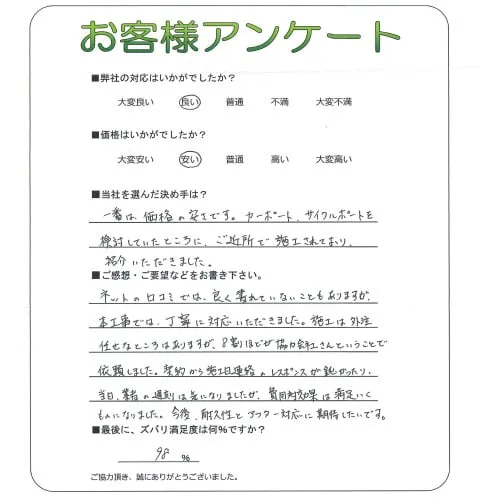 お客様アンケート
■弊社の対応はいかがでしたか?
大変良い 良い 普通 不満 大変不満
■価格はいかがでしたか?
大変安い 安い 普通 高い 大変高い
■当社を選んだ決め手は?
一番は、価格の安さです。カーポート、サイクルポートを
検討していたところに、ご近所で施工されており、
紹介いただきました。
■ご感想・ご要望などをお書き下さい。
ネットの口コミでは、良く書れていないこともありますが、
本工事では、丁寧に対応いただきました。施工は外注
任せなところはありますが、8割ほどが協力会社さんということで
依頼しました。契約から施工日連絡のレスポンスが鈍かったり、
当日、業者の遅刻は気になりましたが、費用対効果は満足いく
ものになりました。今後、耐久性とアフター対応に期待したいです。
■最後に、ズバリ満足度は何%ですか?
98 %
ご協力頂き、誠にありがとうございました。